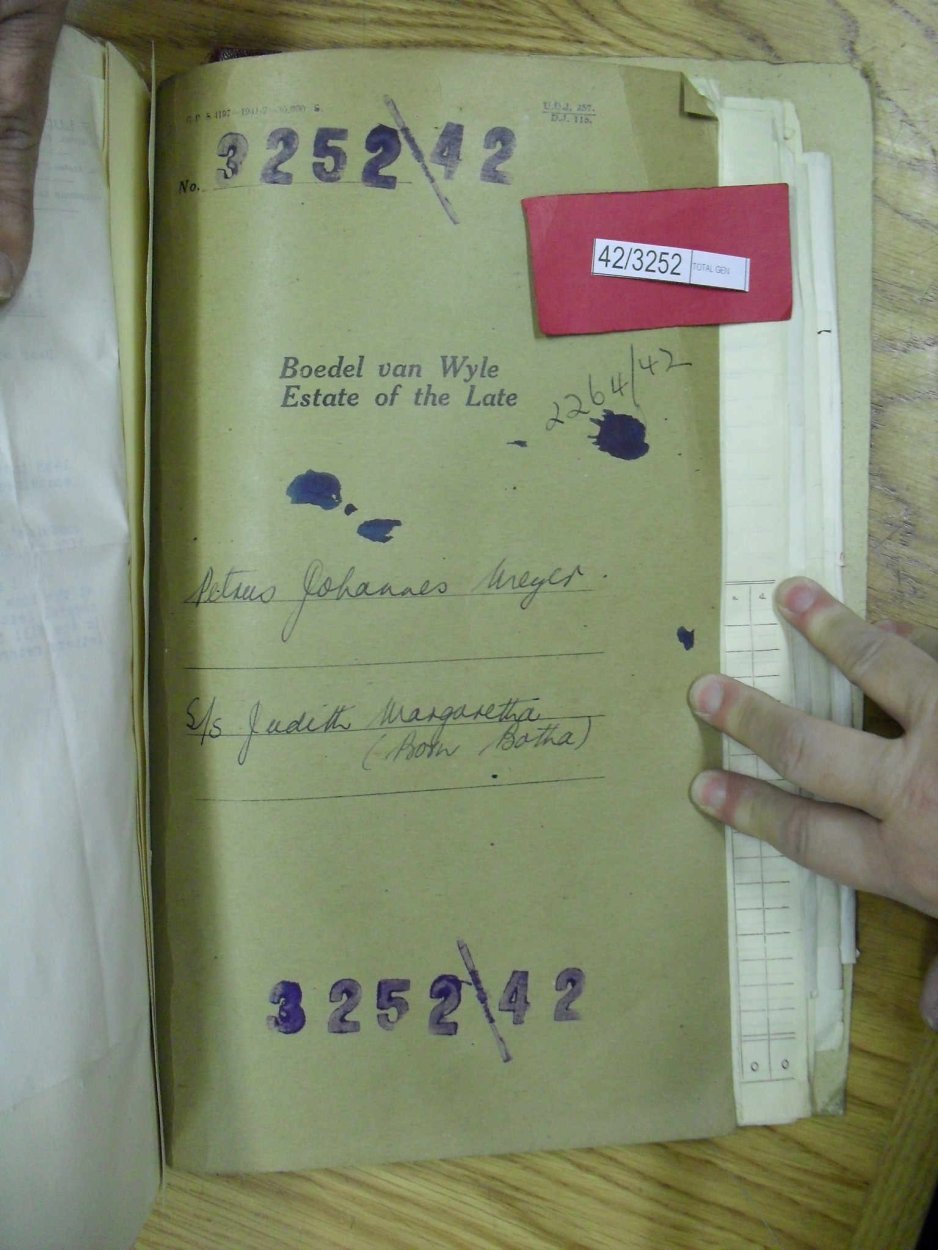 G.P. S.4197—1941-2—30,000 S.
U.D.J. 257.
D.J. 115.
No. 3252\42
42/3252 TOTAL GEN
Boedel van Wyle
Estate of the Late
2264/42
Petrus Johannes Meyer.
S/s Judith Margaretha
(Born Botha)
3252\42